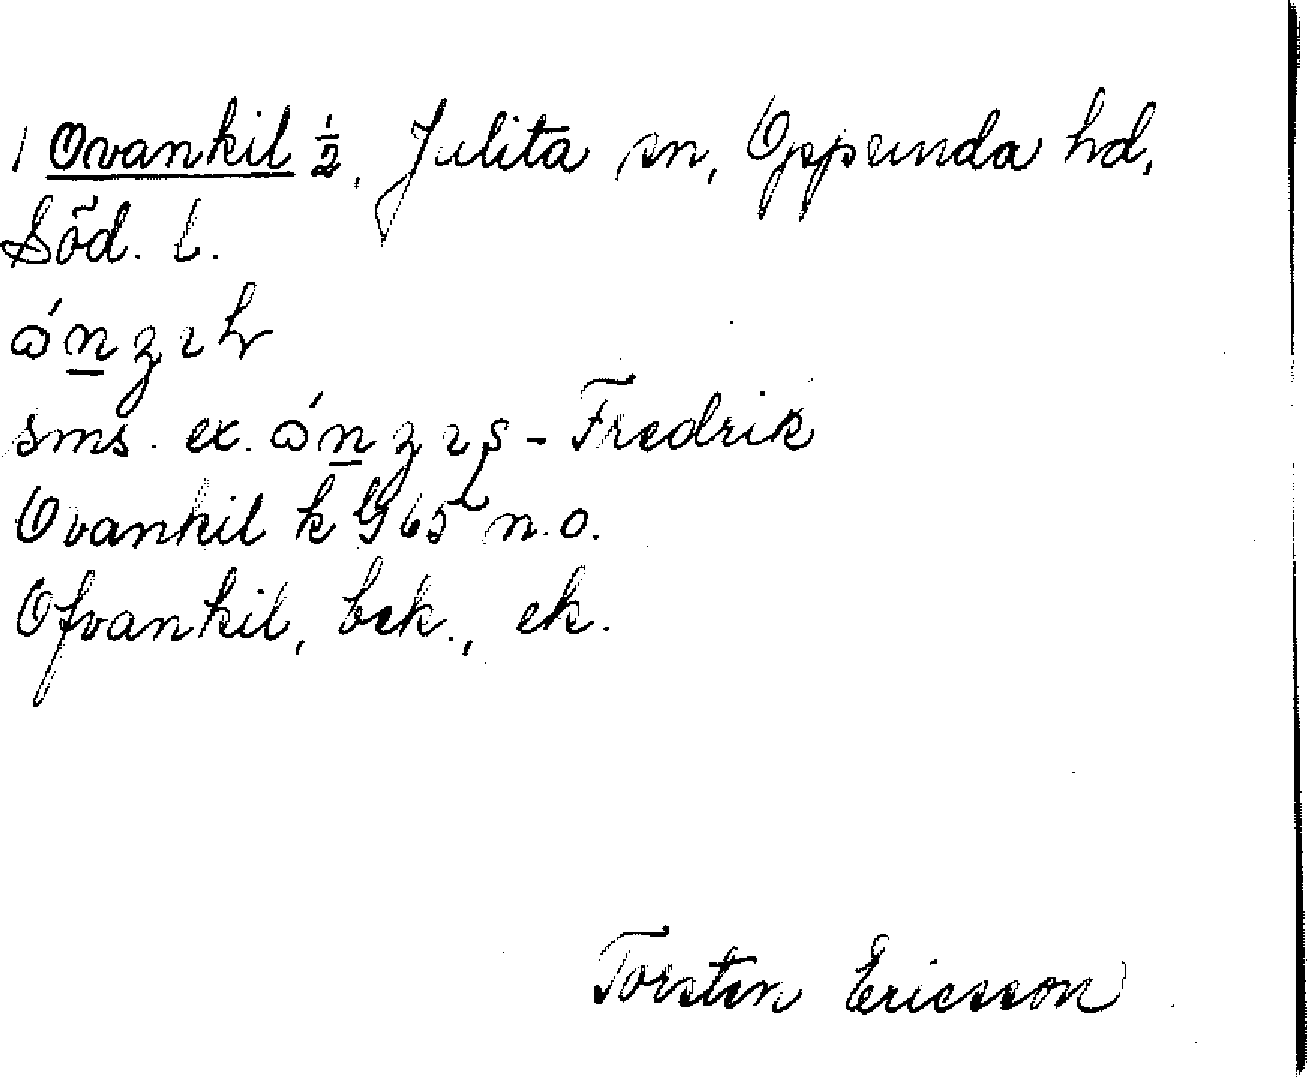 1 Ovankil ½, Julita sn, Oppunda hd,
Söd. l.
sms. ex. - Fredrik
Ovankil k G 65 n.o.
Ofvankil, bek., ek.
Torsten Ericsson